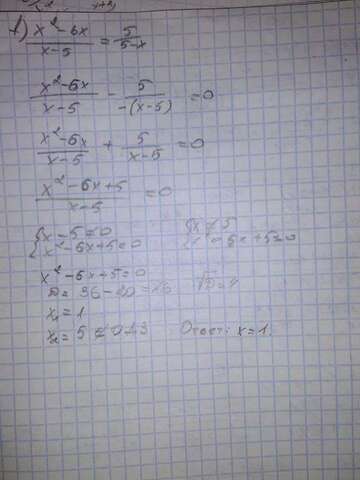 1) (x²-6x)/(x-5) = 5/(5-x)
(x²-6x)/(x-5) - 5/(-(x-5)) = 0
(x²-6x)/(x-5) + 5/(x-5) = 0
(x²-6x+5)/(x-5) = 0
{x-5≠0 {x≠5
{x²-6x+5=0 -6x+5=0
x²-6x+5=0
D= 36-20=16 √D=4
x₁=1
x₂=5 ∉ ОДЗ Ответ: x=1.